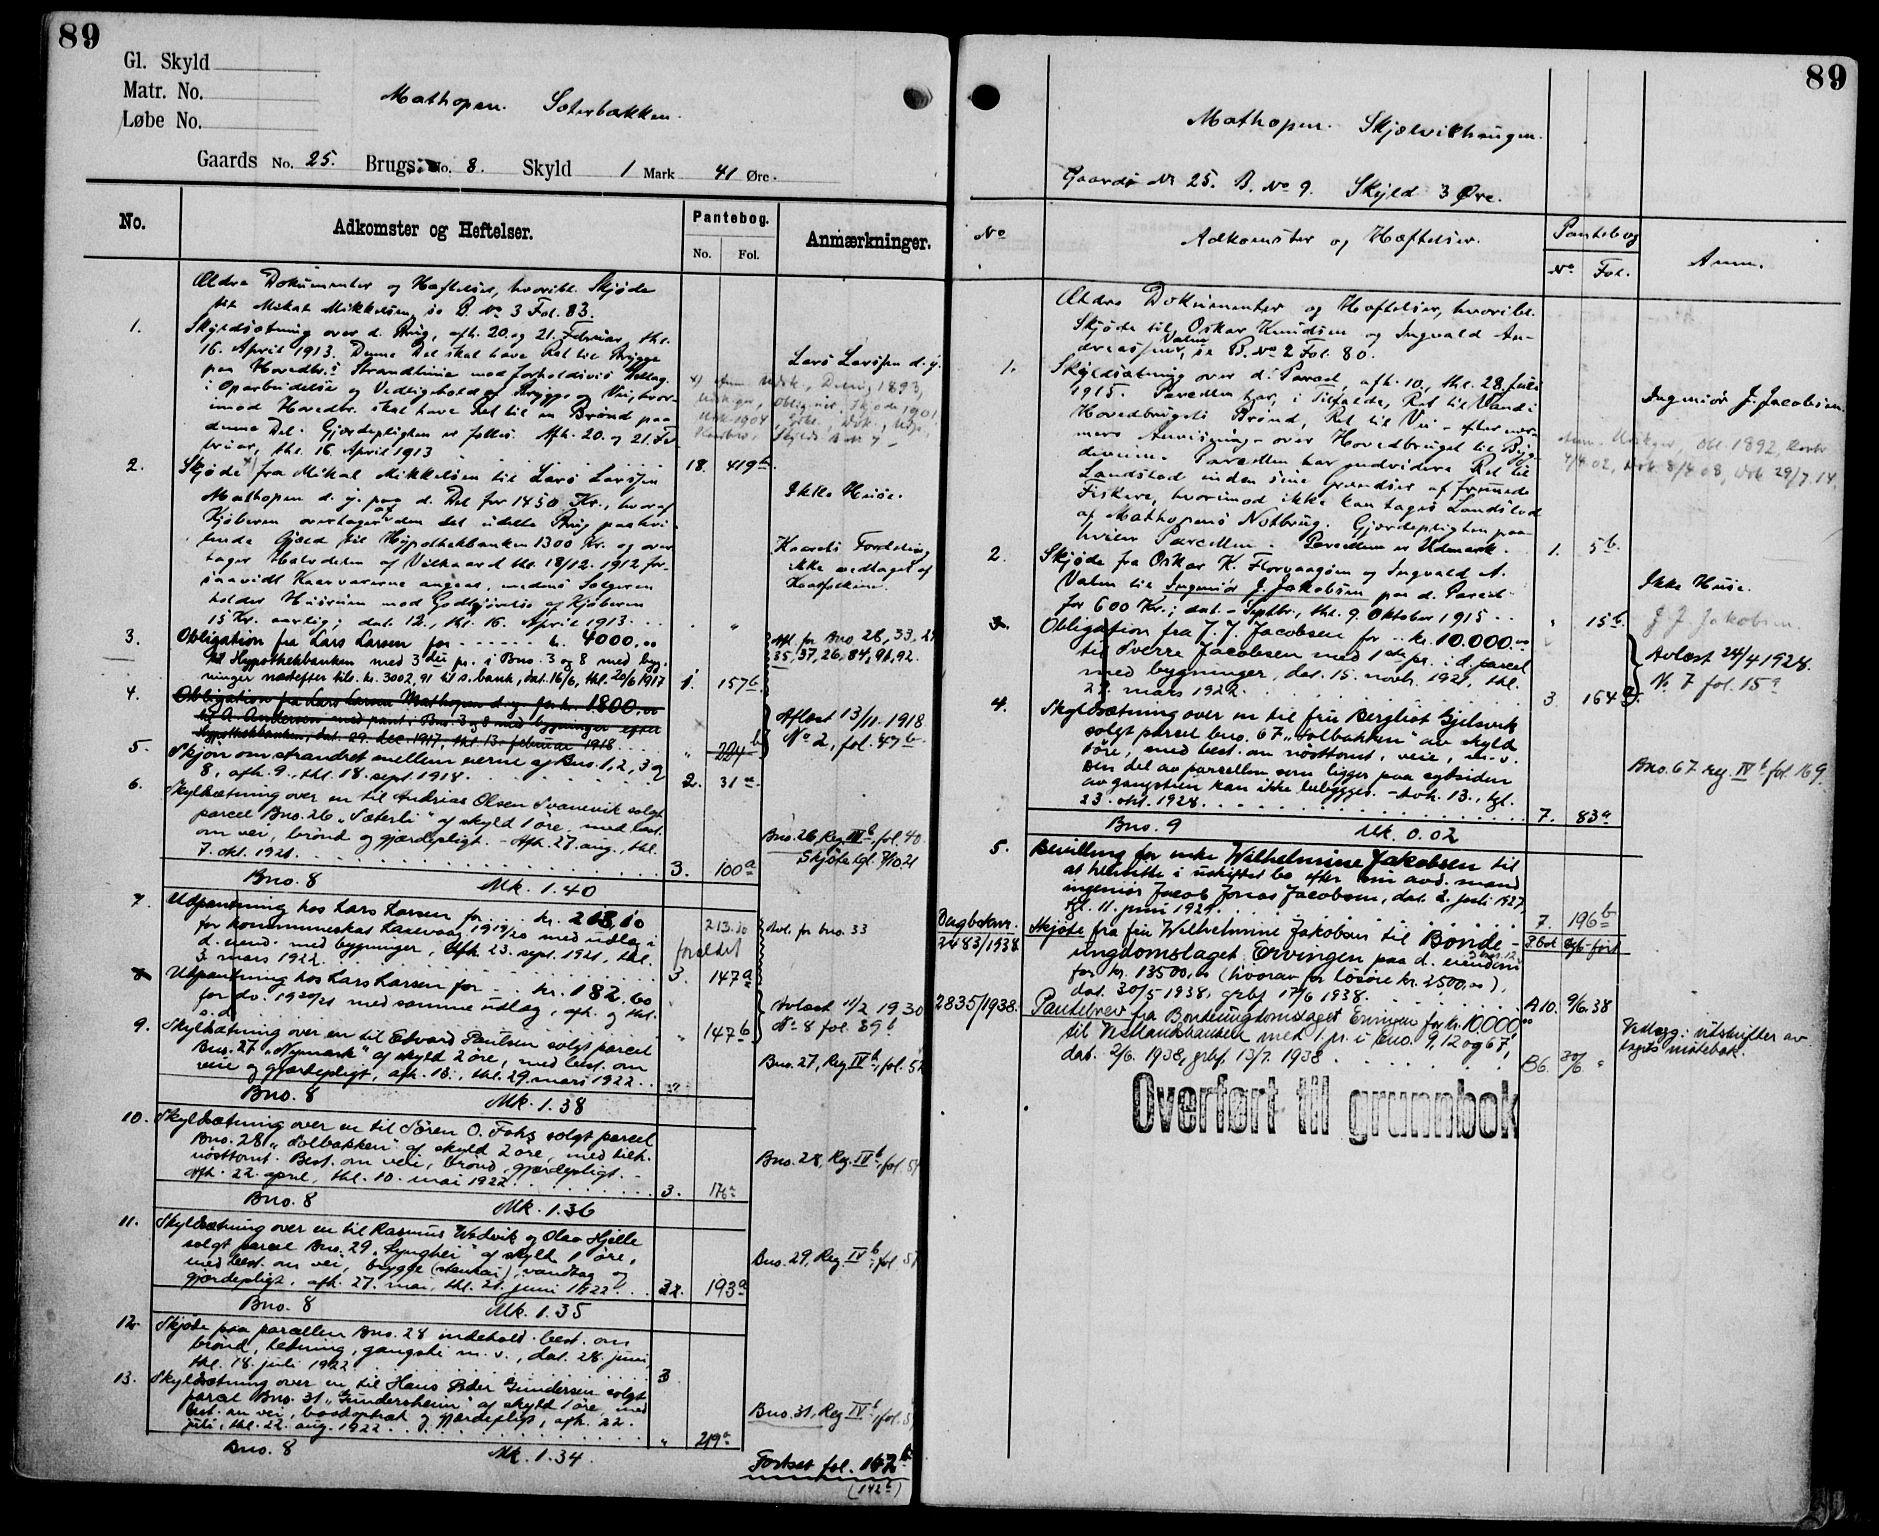 89
Gl. Skyld
Matr. No.
Løbe No.
Mathopen. Sæterbakken.
Gaards No. 25. Brugs No. 8. Skyld 1 Mark 41 Øre.
No. Adkomster og Heftelser. Pantebog. Anmærkninger.
No. Fol.
Ældre Dokumenter og Hæftelser, hvoribl. Skjøde
til Mikal Mikkelsen, se B. No 3 Fol. 83.
1. Skyldsætning over d. Brug, afh. 20. og 21. Februar, thl.
16. April 1913. Denne Del skal have Ret til Brygge
paa Hovedbr.s Strandlinie mod forholdsvis Bidrag
i Oparbeidelse og Vedligehold af Brygge og Vei, hvor-
imod Hovedbr. skal have Ret til en Brønd paa
denne Del. Gjærdepligten er fælles. Afh. 20. og 21. Fe-
bruar, thl. 16. April 1913 18. 419 b
Lars Larssen d. y.
2. Skjøde fra Mikal Mikkelsen til Lars Larssen
Mathopen d. y. paa d. Del for 1450 Kr., hvoraf
Kjøberen overtager af den det udelte Brug paahvi-
lende Gjæld til Hypothekbanken 1300 Kr. og over-
tager Halvdelen af Vilkaar d thl. 18/12. 1912, for-
saavidt Kaarvarerne angaar, medens Sælgeren
holder Husrum mod Godtgjørelse af Kjøberen
15 Kr. aarlig; dat. 12., thl. 16. April 1913. "
Ikke Huse.
Kaarets Fordeling
ikke vedtaget af
Kaarfolkene.
3. Obligation fra Lars Larsen for kr. 4000,00
til Hypothekbanken med 3die pr. i Bno. 3 og 8 med byg-
ninger næstefter tils. kr. 3002,91 til s. bank, dat. 16/6, thl. 20/6 1917 1. 157 b
Afl. for Bno 28, 33, 29
35, 37, 26, 84, 91, 92.
4. Obligation fra Lars Larsen Mathopen d. y. for kr. 1800,00
til A. Andersen med pant i Bno 3 og 8 med bygninger efter
Hypothekbanken, dat. 29. dec. 1917, thl. 13. februar 1918 " 224 b
Aflæst 13/11. 1918
No 2, fol. 47 b
5. Skjøn om strandret mellem eierne af Bno. 1, 2, 3 og
8, afh. 9., thl. 18. sept. 1918. 2. 31 a
6. Skyldsætning over en til Andreas Olsen Svanevik solgt
parcel Bno. 26 „Sæterli" af skyld 1 øre, med best.
om vei, brønd og gjærdepligt. - Afh. 27. aug., thl.
7. okt. 1921. 3. 100 a
Bno. 26 Reg. III b fol. 40
Skjøte tgl. 7/10. 21
Bno. 8 Mk. 1.40
7. Utpantning hos Lars Larsen for kr. 213,10
for kommuneskat Laksevaag 1919/20 med utlæg i
d. eiend. med bygninger, Afh. 23. sept. 1921, thl.
3. mars 1922. 3. 147 a
forældet
Avl. for bno. 33
8 Utpantning hos Lars Larsen for kr. 182,60
for do. 1920/21 med samme utlæg, afh. og thl.
s. d. " 147 b
Avlæst 11/2 1930
No 8 fol. 89 b
9. Skyldsætning over en til Edvard Paulsen solgt parcel
Bno. 27 „Nymark" af skyld 2 øre, med best. om
veie og gjærdepligt, afh. 18., thl. 29. mars 1922.
Bno. 27, Reg. IV b, fol. 5
Bno. 8 Mk. 1.38
10. Skyldsætning over en til Søren O. Fohs solgt parcel
Bno. 28 „Solbakken" af skyld 2 øre, med tilh.
nøsttomt. Best. om veie, brønd, gjærdepligt. -
Afh. 22. april, thl. 10. mai 1922. 3. 176 a
Bno. 28, Reg. IV b, fol. 5
Bno. 8 Mk. 1.36
11. Skyldsætning over en til Rasmus Wedvik og Olav Hjelle
solgt parcel Bno. 29 „Lynghei" af skyld 1 øre,
med best. om vei, brygge (stenkai), vandtag og
gjærdepligt, afh. 27. mai, thl. 21. juni 1922. 193 a
Bno. 29, Reg. IV b, fol. 5
Bno. 8 Mk. 1.35
12. Skjøte paa parcellen Bno. 28 indehold. best. om
brønd, ledning, gangsti m. v., dat. 28. juni,
thl. 18. juli 1922. 3
13. Skyldsætning over en til Hans Peder Gundersen solgt
parcel Bno. 31 „Gundersheim" af skyld 1 øre, med
best. om vei, baadoptræk og gjærdepligt, afh. 22.
juli, thl. 22. aug. 1922. " 219 a
Bno. 31, Reg. IV b, fol. 5
Bno. 8 Mk. 1.34.
Fortset fol. 142 b
(142 b)
89
Mathopen. Skjælvikhaugen.
Gaards No 25. B. No 9. Skyld 3 Øre.
No Adkomster og Hæftelser. Pantebog Anm.
No Fol.
Ældre Dokumenter og Hæftelser, hvoribl.
Skjøde til Oskar Knudsen og Ingvald An-
dreassen Valen, se B. No 2 Fol. 80.
1. Skyldsætning over d. Parcel, afh. 10., thl. 28. Juli
1915. Parcellen har, i Tilfælde, Ret til Vand i
Hovedbrugets Brønd, Ret til Vei - efter nær-
mere Anvisning - over Hovedbruget til Byg-
deveien. Parcellen har endvidere Ret til
Landstød inden sine Grændser af fremmede
Fiskere, hvorimod ikke kan tages Landstød
af Mathopens Notbrug. Gjærdepligten paa-
hviler Parcellen. Parcellen er Udmark. 1. 5 b
Ingeniør J. Jacobsen.
2. Skjøde fra Oskar K. Florvaagøen og Ingvald A.
Valen til Ingeniør J. Jakobsen paa d. Parcel
for 600 Kr.; dat. - Septbr., thl. 9. Oktober 1915 " 15 b
Ikke Huse.
J. J. Jakobsen.
3. Obligation fra J. J. Jacobsen for kr. 10.000,00
til Sverre Jacobsen med 1ste pr. i d. parcel
med bygninger, dat. 15. novbr. 1921, thl.
22. mars 1922. 3. 164 a
Avlæst 24/4 1928
No 7 fol. 15 a
4. Skyldsætning over en til fru Bergliot Gjelsvik
solgt parcel bno. 67 „Solbakken" av skyld
1 øre, med best. om nøsttomt, veie, m. v.
Den del av parcellen som ligger paa sydsiden
av gangstien kan ikke bebygges. - Avh. 13., tgl.
23. okt. 1928. 7. 83 a
Bno. 67 reg. IV b fol. 169.
Bno. 9 Mk. 0.02
5. Bevilling for enke Wilhelmine Jakobsen til
at hensitte i uskiftet bo efter sin avd. mand
ingeniør Jacob Jonas Jacobsen, dat. 2. juli 1927,
tgl. 11. juni 1929. 7. 196 b
Dagboknr. P.bok
2483/1938. Skjøte fra fru Wilhelmine Jakobsen til Bonde-
ungdomslaget Ervingen paa d. eiendom
for kr. 13500,00 (hvorav for løsøre kr. 2500,00),
dat. 30/5 1938, grbf. 17/6 1938. A10. 9/6. 38
2835/1938. Pantebrev fra Bondeungdomslaget Ervingen for kr. 10.000,00
til Vestlandsbanken med 1. pr. i bno. 9, 12 og 67,
dat. 2/6. 1938, grbf. 13/7. 1938. B6. 30/6. "
Vedlegg: utskrifter av
lagets møtebok.
Overført til grunnbok